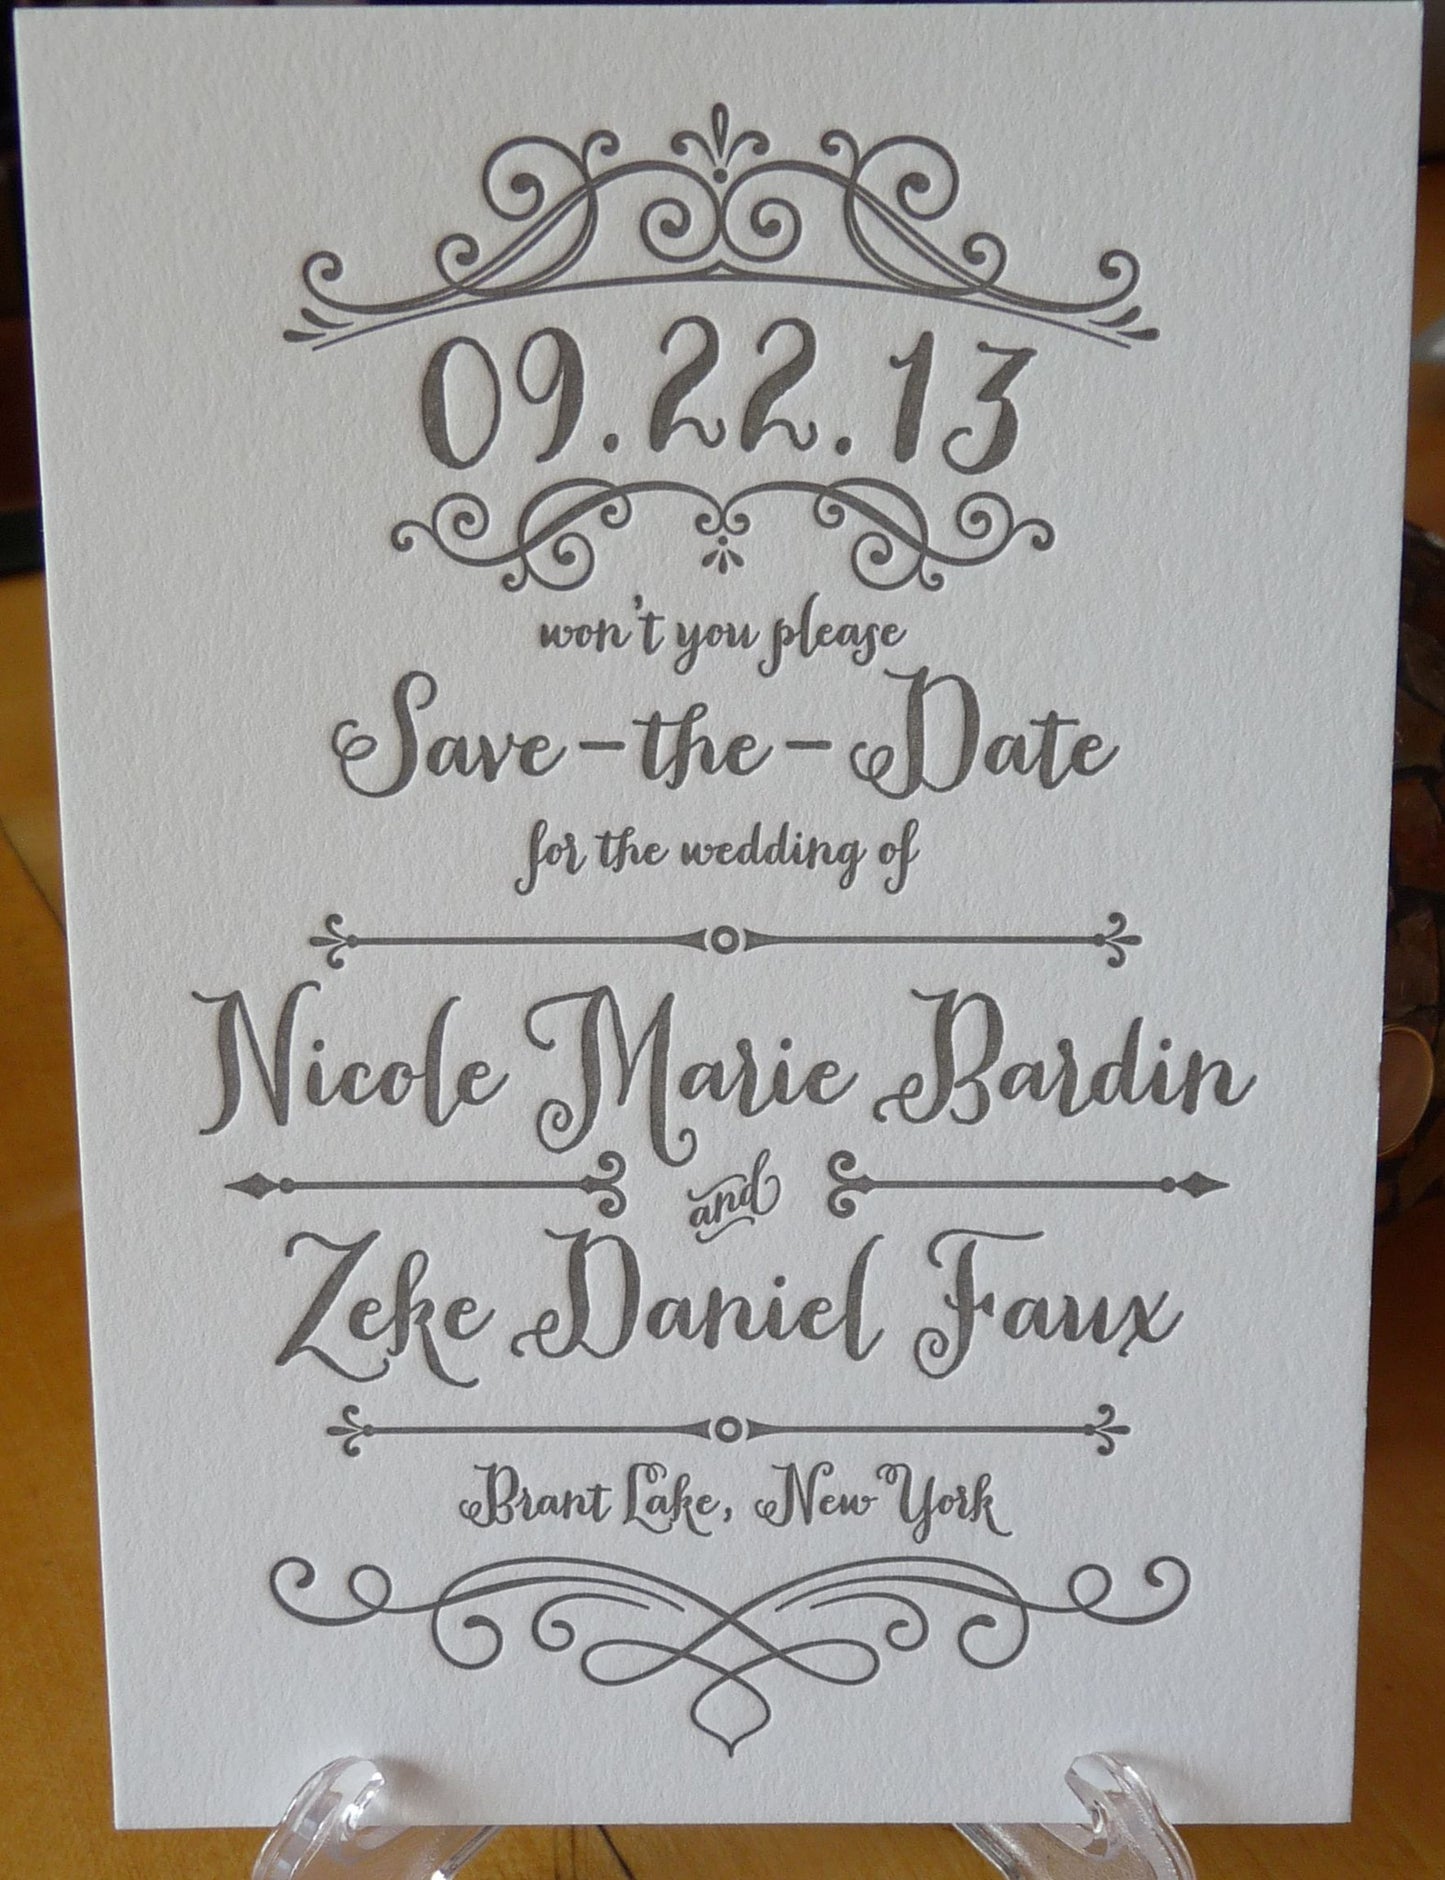 09.22.13
won't you please
Save-the-Date
for the wedding of
Nicole Marie Bardin
and
Zeke Daniel Faux
Brant Lake, New York